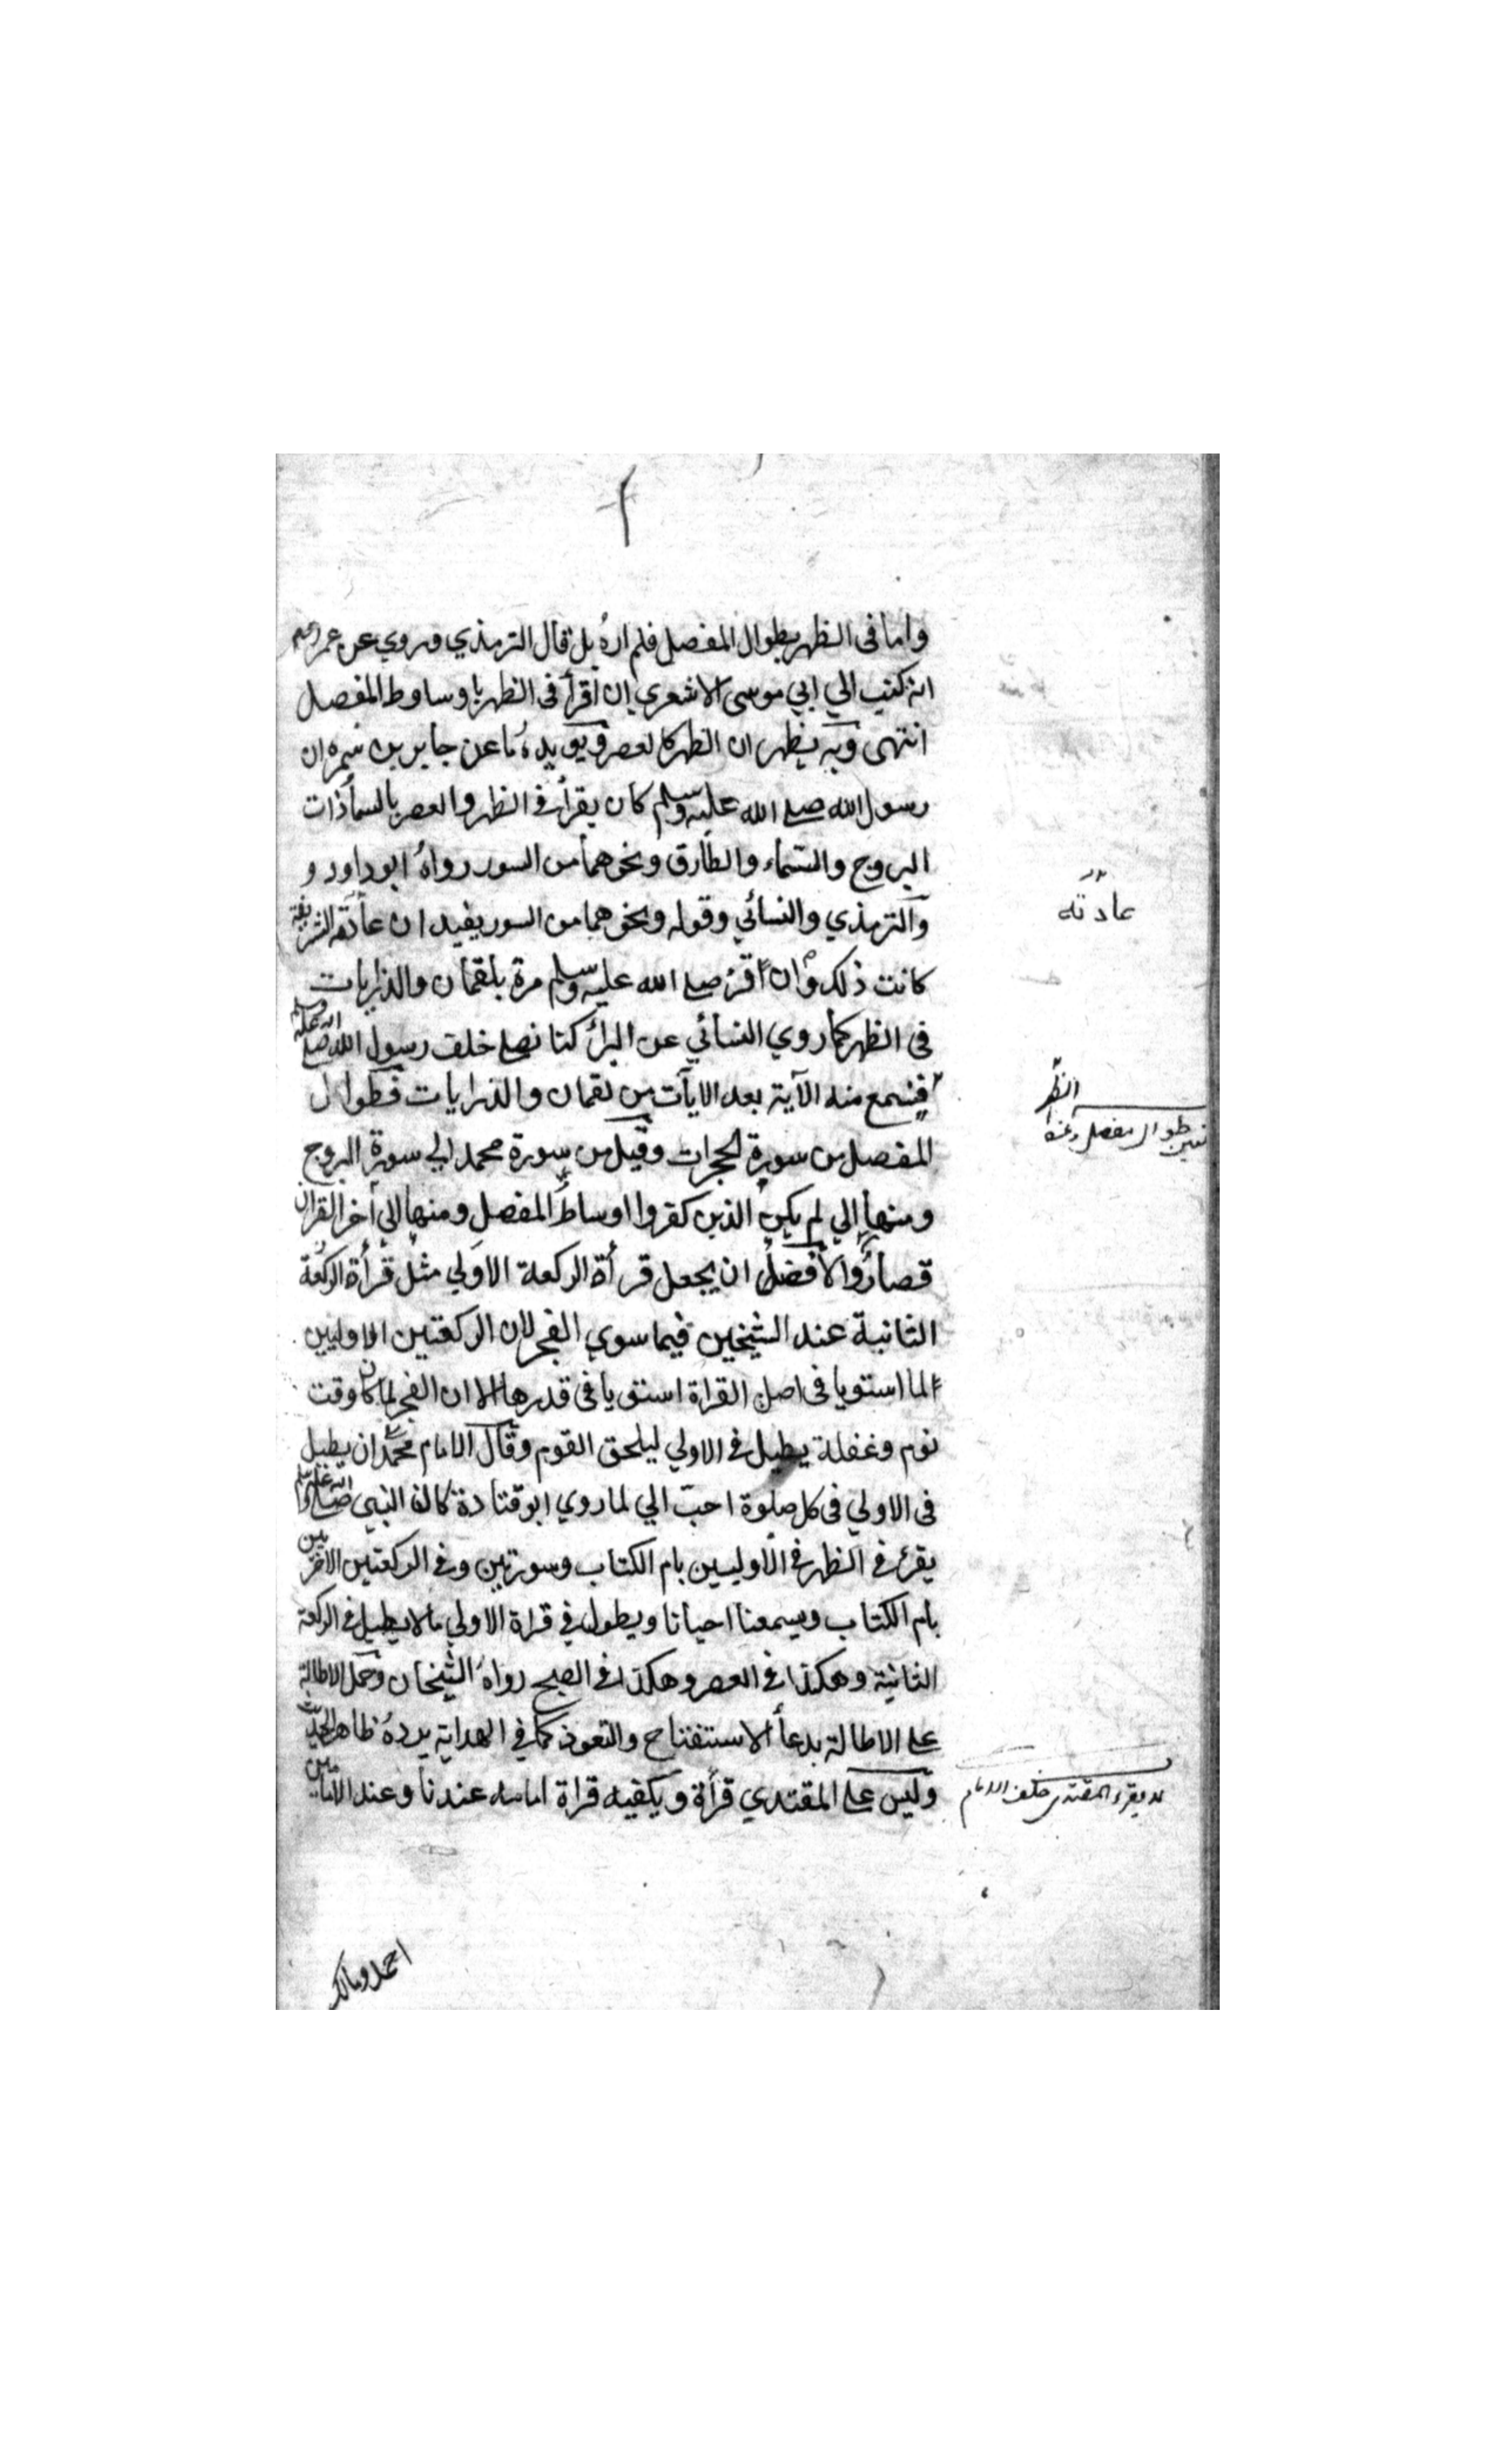 واما فى الظهر بطوال المفصل فلم اره بل قال الترمذي وروي عن عمر رضي
انه كتب الي ابي موسى الاشعري ان اقرأ فى الظهر باوساوط المفصل
انتهى وبه يظهر ان الظهر كالعصر ويويده ما عن جابر بن سمره ان
رسول الله صلے الله عليه وسلم كان يقرأ فے الظهر والعصر بالسماء ذات
البروج والسماء والطارق ونحوهما من السور رواه ابوداود و
والترمذي والنسائي وقوله ونحوهما من السور يفيد ان عادته الشريفة
عادته
كانت ذلك وان اقرء صلے الله عليه وسلم مرة بلقمان والذاريات
فى الظهر كما روي النسائي عن البرأ كنا نصلے خلف رسول الله صلے الله عليه وسلم
الظهر
فنسمع منه الآية بعد الايآت من لقمان والذرايات فطوال
طوال مفصل
المفصل من سورة الحجرات وقيل من سورة محمد الي سورة البروج
ومنها الي لم يكن الذين كفروا اوساط المفصل ومنها الي أخر القران
قصاره والافضل ان يجعل قرأة الركعة الاولي مثل قرأة الركعة
الثانية عند الشيخين فيما سوي الفجر لان الركعتين الاوليين
لما استويا فى اصل القراة استويا فى قدرها الا ان الفجر لما كان وقت
نوم وغفلة يطيل فے الاولي ليلحق القوم وقال الامام محمد ان يطيل
فى الاولي فى كل صلوة احب الي لما روي ابو قتادة كان النبي صلے الله عليه وسلم
يقرء فے الظهر فے الاوليين بام الكتاب وسورتين وفے الركعتين الاخريين
بام الكتاب ويسمعنا احيانا ويطول في قراة الاولي ما لا يطيل فے الركعة
الثانية وهكذا فے العصر وهكذا فے الصبح رواه الشيخان وحمل الاطالة
علے الاطالة بدعأ الاستفتاح والتعوذ كما في الهداية يرده ظاهر الحديث
وليس علے المقتدي قرأة ويكفيه قراة امامه عندنا وعند الامامين
لا يقرء المقتدى خلف الامام
احمد ومالك